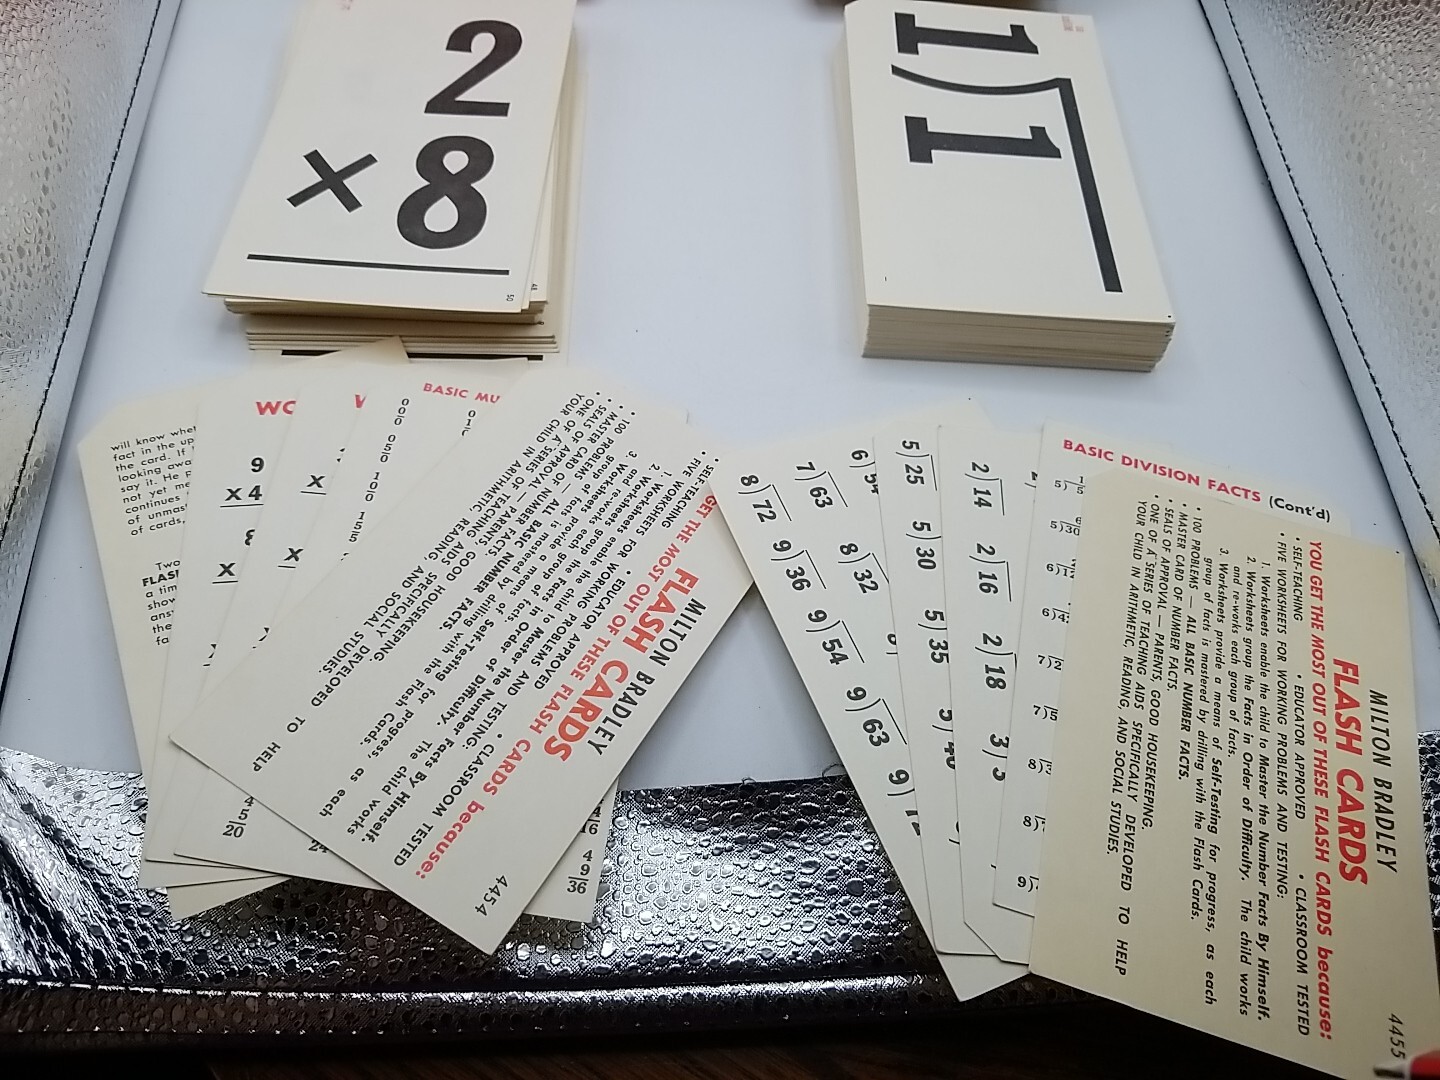 2
× 8
50
48
1)1
1
will know whe
fact in the up
the card. If
looking awa
say it. He
not yet me
continues
of unmas
of cards,
Two
FLAS
a tim
show
ans
the
fa
WO
9
x 4
8
x
W
x
x
BASIC MU
4
5
20
24
4
16
4
9
36
MILTON BRADLEY
FLASH CARDS
GET THE MOST OUT OF THESE FLASH CARDS because:
• SELF-TEACHING • EDUCATOR APPROVED • CLASSROOM TESTED
• FIVE WORKSHEETS FOR WORKING PROBLEMS AND TESTING:
1. Worksheets enable the child to Master the Number Facts By Himself.
2. Worksheets group the Facts in Order of Difficulty. The child works
and re-works each group of facts.
3. Worksheets provide a means of Self-Testing for progress, as each
group of facts is mastered by drilling with the Flash Cards.
• 100 PROBLEMS — ALL BASIC NUMBER FACTS.
• MASTER CARD OF NUMBER FACTS.
• SEALS OF APPROVAL — PARENTS, GOOD HOUSEKEEPING.
• ONE OF A SERIES OF TEACHING AIDS SPECIFICALLY DEVELOPED TO HELP
YOUR CHILD IN ARITHMETIC, READING, AND SOCIAL STUDIES.
4454
8)72 9)36 9)54 9)63 9)
7)63 8)32
6)54
5)25 5)30 5)35
2)14 2)16 2)18 3)3
BASIC DIVISION FACTS (Cont'd)
5)5
5)30
6)12
6)42
7)
7)
8)
8)
9)
MILTON BRADLEY
FLASH CARDS
YOU GET THE MOST OUT OF THESE FLASH CARDS because:
• SELF-TEACHING • EDUCATOR APPROVED • CLASSROOM TESTED
• FIVE WORKSHEETS FOR WORKING PROBLEMS AND TESTING:
1. Worksheets enable the child to Master the Number Facts By Himself.
2. Worksheets group the Facts in Order of Difficulty. The child works
and re-works each group of facts.
3. Worksheets provide a means of Self-Testing for progress, as each
group of facts is mastered by drilling with the Flash Cards.
• 100 PROBLEMS — ALL BASIC NUMBER FACTS.
• MASTER CARD OF NUMBER FACTS.
• SEALS OF APPROVAL — PARENTS, GOOD HOUSEKEEPING.
• ONE OF A SERIES OF TEACHING AIDS SPECIFICALLY DEVELOPED TO HELP
YOUR CHILD IN ARITHMETIC, READING, AND SOCIAL STUDIES.
4455